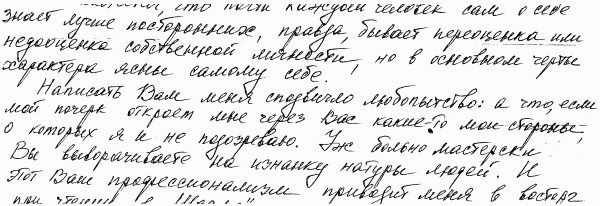 что почти каждый человек сам о себе
знает лучше посторонних, правда, бывает переоценка или
недооценка собственной личности, но в основном черты
характера ясны самому себе.
Написать Вам меня сподвигло любопытство: а что, если
мой почерк откроет мне через Вас какие-то мои стороны,
о которых я и не подозреваю. Уж больно мастерски
Вы выворачиваете на изнанку натуры людей. И
этот Ваш профессионализм приводит меня в восторг
при